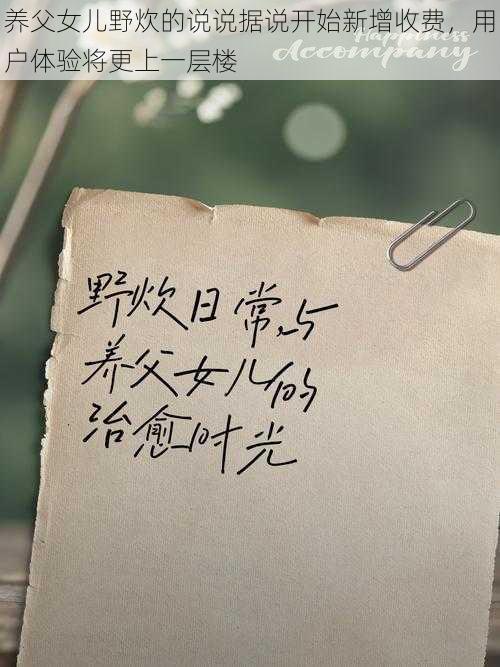 养父女儿野炊的说说据说开始新增收费，用
户体验将更上一层楼
Happiness
Accompany
野炊日常,与
养父女儿的
治愈时光